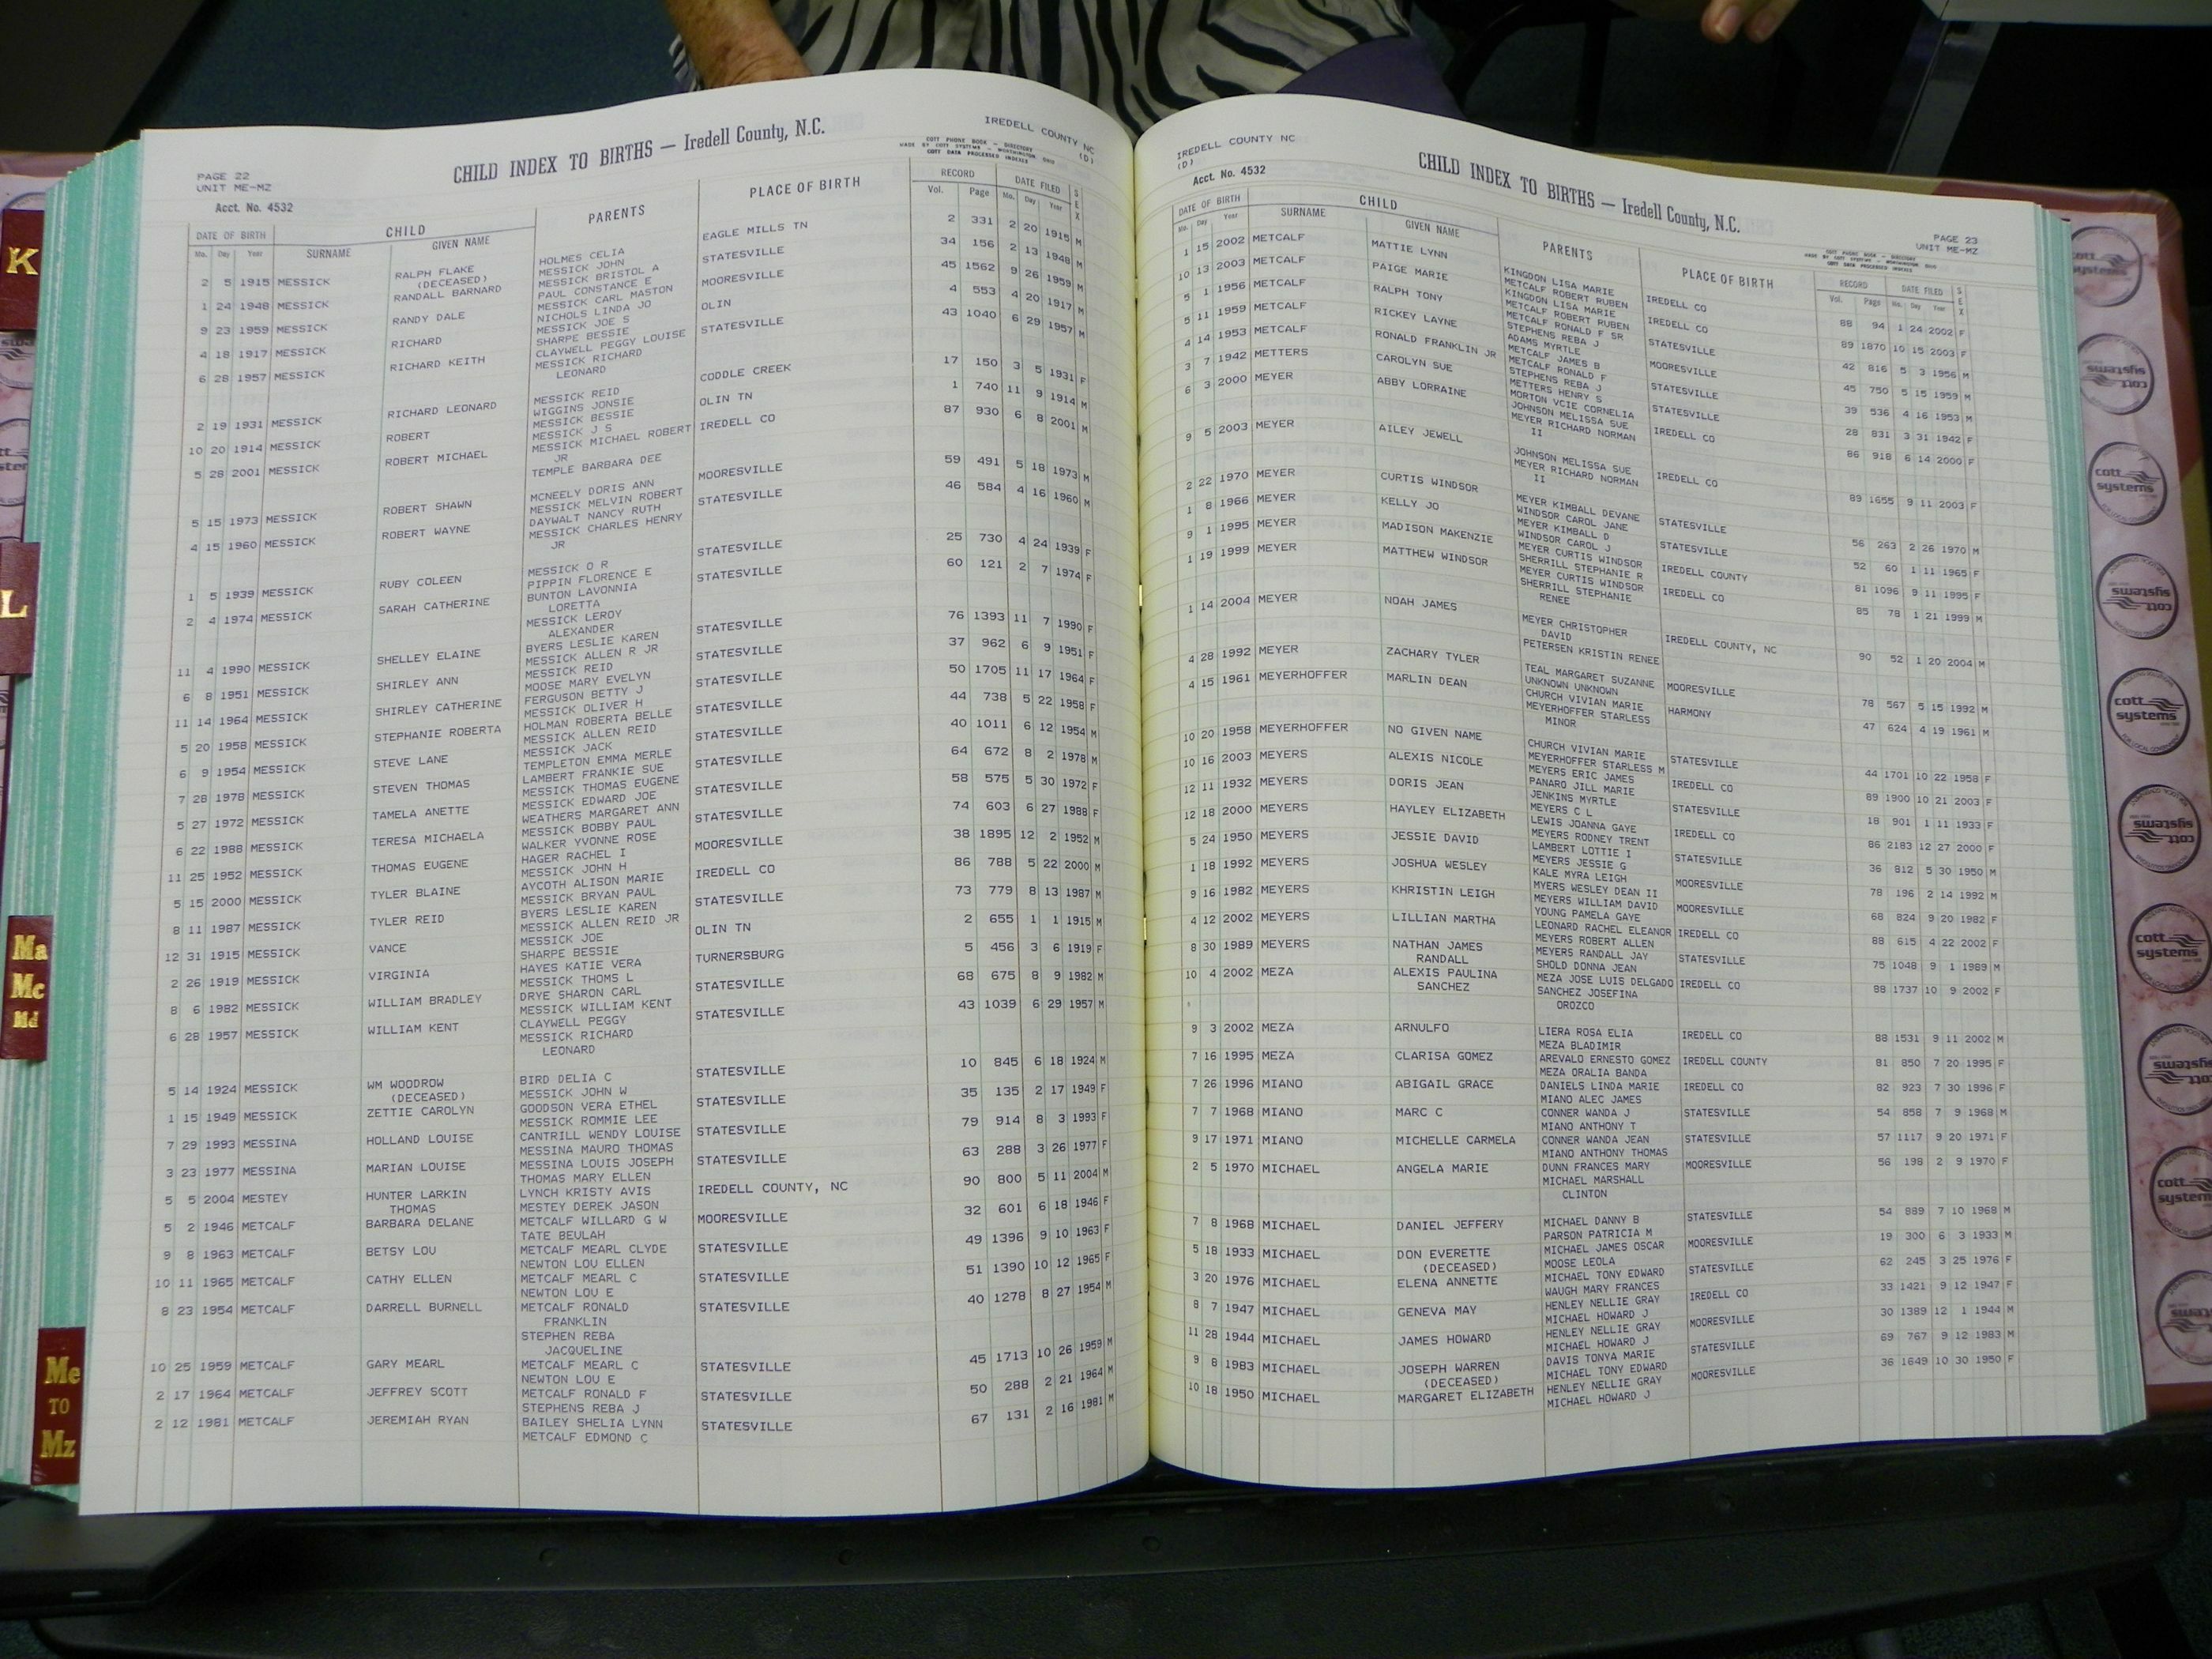 K
L
Ma
Mc
Md
Me
TO
Mz
IREDELL COUNTY NC
(D)
CHILD INDEX TO BIRTHS — Iredell County, N.C.
COTT PHONE BOOK - DIRECTORY
MADE BY COTT SYSTEMS - WORTHINGTON OHIO
COTT DATA PROCESSED INDEXES
PAGE 22
UNIT ME-MZ
Acct. No. 4532
DATE OF BIRTH CHILD PARENTS PLACE OF BIRTH RECORD DATE FILED SEX
Mo. Day Year SURNAME GIVEN NAME Vol. Page Mo. Day Year
2 5 1915 MESSICK RALPH FLAKE HOLMES CELIA EAGLE MILLS TN 2 331 2 20 1915 M
(DECEASED) MESSICK JOHN
1 24 1948 MESSICK RANDALL BARNARD MESSICK BRISTOL A STATESVILLE 34 156 2 13 1948 M
PAUL CONSTANCE E
9 23 1959 MESSICK RANDY DALE MESSICK CARL MASTON MOORESVILLE 45 1562 9 26 1959 M
NICHOLS LINDA JO
4 18 1917 MESSICK RICHARD MESSICK JOE S OLIN 4 553 4 20 1917 M
SHARPE BESSIE
6 28 1957 MESSICK RICHARD KEITH CLAYWELL PEGGY LOUISE STATESVILLE 43 1040 6 29 1957 M
MESSICK RICHARD
LEONARD
2 19 1931 MESSICK RICHARD LEONARD MESSICK REID CODDLE CREEK 17 150 3 5 1931 F
WIGGINS JONSIE
10 20 1914 MESSICK ROBERT MESSICK BESSIE OLIN TN 1 740 11 9 1914 M
MESSICK J S
5 28 2001 MESSICK ROBERT MICHAEL MESSICK MICHAEL ROBERT IREDELL CO 87 930 6 8 2001 M
JR
TEMPLE BARBARA DEE
5 15 1973 MESSICK ROBERT SHAWN MCNEELY DORIS ANN MOORESVILLE 59 491 5 18 1973 M
MESSICK MELVIN ROBERT
4 15 1960 MESSICK ROBERT WAYNE DAYWALT NANCY RUTH STATESVILLE 46 584 4 16 1960 M
MESSICK CHARLES HENRY
JR
1 5 1939 MESSICK RUBY COLEEN MESSICK O R STATESVILLE 25 730 4 24 1939 F
PIPPIN FLORENCE E
2 4 1974 MESSICK SARAH CATHERINE BUNTON LAVONNIA STATESVILLE 60 121 2 7 1974 F
LORETTA
MESSICK LEROY
ALEXANDER
11 4 1990 MESSICK SHELLEY ELAINE BYERS LESLIE KAREN STATESVILLE 76 1393 11 7 1990 F
MESSICK ALLEN R JR
6 8 1951 MESSICK SHIRLEY ANN MESSICK REID STATESVILLE 37 962 6 9 1951 F
MOOSE MARY EVELYN
11 14 1964 MESSICK SHIRLEY CATHERINE FERGUSON BETTY J STATESVILLE 50 1705 11 17 1964 F
MESSICK OLIVER H
5 20 1958 MESSICK STEPHANIE ROBERTA HOLMAN ROBERTA BELLE STATESVILLE 44 738 5 22 1958 F
MESSICK ALLEN REID
6 9 1954 MESSICK STEVE LANE MESSICK JACK STATESVILLE 40 1011 6 12 1954 M
TEMPLETON EMMA MERLE
7 28 1978 MESSICK STEVEN THOMAS LAMBERT FRANKIE SUE STATESVILLE 64 672 8 2 1978 M
MESSICK THOMAS EUGENE
5 27 1972 MESSICK TAMELA ANETTE MESSICK EDWARD JOE STATESVILLE 58 575 5 30 1972 F
WEATHERS MARGARET ANN
6 22 1988 MESSICK TERESA MICHAELA MESSICK BOBBY PAUL STATESVILLE 74 603 6 27 1988 F
WALKER YVONNE ROSE
11 25 1952 MESSICK THOMAS EUGENE HAGER RACHEL I MOORESVILLE 38 1895 12 2 1952 M
MESSICK JOHN H
5 15 2000 MESSICK TYLER BLAINE AYCOTH ALISON MARIE IREDELL CO 86 788 5 22 2000 M
MESSICK BRYAN PAUL
8 11 1987 MESSICK TYLER REID BYERS LESLIE KAREN STATESVILLE 73 779 8 13 1987 M
MESSICK ALLEN REID JR
12 31 1915 MESSICK VANCE MESSICK JOE OLIN TN 2 655 1 1 1915 M
SHARPE BESSIE
2 26 1919 MESSICK VIRGINIA HAYES KATIE VERA TURNERSBURG 5 456 3 6 1919 F
MESSICK THOMS L
8 6 1982 MESSICK WILLIAM BRADLEY DRYE SHARON CARL STATESVILLE 68 675 8 9 1982 M
MESSICK WILLIAM KENT
6 28 1957 MESSICK WILLIAM KENT CLAYWELL PEGGY STATESVILLE 43 1039 6 29 1957 M
MESSICK RICHARD
LEONARD
5 14 1924 MESSICK WM WOODROW BIRD DELIA C STATESVILLE 10 845 6 18 1924 M
(DECEASED) MESSICK JOHN W
1 15 1949 MESSICK ZETTIE CAROLYN GOODSON VERA ETHEL STATESVILLE 35 135 2 17 1949 F
MESSICK ROMMIE LEE
7 29 1993 MESSINA HOLLAND LOUISE CANTRILL WENDY LOUISE STATESVILLE 79 914 8 3 1993 F
MESSINA MAURO THOMAS
3 23 1977 MESSINA MARIAN LOUISE MESSINA LOUIS JOSEPH STATESVILLE 63 288 3 26 1977 F
THOMAS MARY ELLEN
5 5 2004 MESTEY HUNTER LARKIN LYNCH KRISTY AVIS IREDELL COUNTY, NC 90 800 5 11 2004 M
THOMAS MESTEY DEREK JASON
5 2 1946 METCALF BARBARA DELANE METCALF WILLARD G W MOORESVILLE 32 601 6 18 1946 F
TATE BEULAH
9 8 1963 METCALF BETSY LOU METCALF MEARL CLYDE STATESVILLE 49 1396 9 10 1963 F
NEWTON LOU ELLEN
10 11 1965 METCALF CATHY ELLEN METCALF MEARL C STATESVILLE 51 1390 10 12 1965 F
NEWTON LOU E
8 23 1954 METCALF DARRELL BURNELL METCALF RONALD STATESVILLE 40 1278 8 27 1954 M
FRANKLIN
STEPHEN REBA
JACQUELINE
10 25 1959 METCALF GARY MEARL METCALF MEARL C STATESVILLE 45 1713 10 26 1959 M
NEWTON LOU E
2 17 1964 METCALF JEFFREY SCOTT METCALF RONALD F STATESVILLE 50 288 2 21 1964 M
STEPHENS REBA J
2 12 1981 METCALF JEREMIAH RYAN BAILEY SHELIA LYNN STATESVILLE 67 131 2 16 1981 M
METCALF EDMOND C
IREDELL COUNTY NC
(D)
Acct. No. 4532
CHILD INDEX TO BIRTHS — Iredell County, N.C.
PAGE 23
UNIT ME-MZ
COTT PHONE BOOK - DIRECTORY
MADE BY COTT SYSTEMS - WORTHINGTON OHIO
COTT DATA PROCESSED INDEXES
DATE OF BIRTH CHILD PARENTS PLACE OF BIRTH RECORD DATE FILED SEX
Mo. Day Year SURNAME GIVEN NAME Vol. Page Mo. Day Year
1 15 2002 METCALF MATTIE LYNN KINGDON LISA MARIE IREDELL CO 88 94 1 24 2002 F
METCALF ROBERT RUBEN
10 13 2003 METCALF PAIGE MARIE KINGDON LISA MARIE IREDELL CO 89 1870 10 15 2003 F
METCALF ROBERT RUBEN
5 1 1956 METCALF RALPH TONY METCALF RONALD F SR STATESVILLE 42 816 5 3 1956 M
STEPHENS REBA J
5 11 1959 METCALF RICKEY LAYNE ADAMS MYRTLE MOORESVILLE 45 750 5 15 1959 M
METCALF JAMES B
4 14 1953 METCALF RONALD FRANKLIN JR METCALF RONALD F STATESVILLE 39 536 4 16 1953 M
STEPHENS REBA J
3 7 1942 METTERS CAROLYN SUE METTERS HENRY S STATESVILLE 28 831 3 31 1942 F
MORTON VCIE CORNELIA
6 3 2000 MEYER ABBY LORRAINE JOHNSON MELISSA SUE IREDELL CO 86 918 6 14 2000 F
MEYER RICHARD NORMAN
II
9 5 2003 MEYER AILEY JEWELL JOHNSON MELISSA SUE IREDELL CO 89 1655 9 11 2003 F
MEYER RICHARD NORMAN
II
2 22 1970 MEYER CURTIS WINDSOR MEYER KIMBALL DEVANE STATESVILLE 56 263 2 26 1970 M
WINDSOR CAROL JANE
1 8 1966 MEYER KELLY JO MEYER KIMBALL D STATESVILLE 52 60 1 11 1965 F
WINDSOR CAROL J
9 1 1995 MEYER MADISON MAKENZIE MEYER CURTIS WINDSOR IREDELL COUNTY 81 1096 9 11 1995 F
SHERRILL STEPHANIE R
1 19 1999 MEYER MATTHEW WINDSOR MEYER CURTIS WINDSOR IREDELL CO 85 78 1 21 1999 M
SHERRILL STEPHANIE
RENEE
1 14 2004 MEYER NOAH JAMES MEYER CHRISTOPHER IREDELL COUNTY, NC 90 52 1 20 2004 M
DAVID
PETERSEN KRISTIN RENEE
4 28 1992 MEYER ZACHARY TYLER TEAL MARGARET SUZANNE MOORESVILLE 78 567 5 15 1992 M
UNKNOWN UNKNOWN
4 15 1961 MEYERHOFFER MARLIN DEAN CHURCH VIVIAN MARIE HARMONY 47 624 4 19 1961 M
MEYERHOFFER STARLESS
MINOR
10 20 1958 MEYERHOFFER NO GIVEN NAME CHURCH VIVIAN MARIE STATESVILLE 44 1701 10 22 1958 F
MEYERHOFFER STARLESS M
10 16 2003 MEYERS ALEXIS NICOLE MEYERS ERIC JAMES IREDELL CO 89 1900 10 21 2003 F
PANARO JILL MARIE
12 11 1932 MEYERS DORIS JEAN JENKINS MYRTLE STATESVILLE 18 901 1 11 1933 F
MEYERS C L
12 18 2000 MEYERS HAYLEY ELIZABETH LEWIS JOANNA GAYE IREDELL CO 86 2183 12 27 2000 F
MEYERS RODNEY TRENT
5 24 1950 MEYERS JESSIE DAVID LAMBERT LOTTIE I STATESVILLE 36 812 5 30 1950 M
MEYERS JESSIE G
1 18 1992 MEYERS JOSHUA WESLEY KALE MYRA LEIGH MOORESVILLE 78 196 2 14 1992 M
MYERS WESLEY DEAN II
9 16 1982 MEYERS KHRISTIN LEIGH MEYERS WILLIAM DAVID MOORESVILLE 68 824 9 20 1982 F
YOUNG PAMELA GAYE
4 12 2002 MEYERS LILLIAN MARTHA LEONARD RACHEL ELEANOR IREDELL CO 88 615 4 22 2002 F
MEYERS ROBERT ALLEN
8 30 1989 MEYERS NATHAN JAMES MEYERS RANDALL JAY STATESVILLE 75 1048 9 1 1989 M
RANDALL SHOLD DONNA JEAN
10 4 2002 MEZA ALEXIS PAULINA MEZA JOSE LUIS DELGADO IREDELL CO 88 1737 10 9 2002 F
SANCHEZ SANCHEZ JOSEFINA
OROZCO
9 3 2002 MEZA ARNULFO LIERA ROSA ELIA IREDELL CO 88 1531 9 11 2002 M
MEZA BLADIMIR
7 16 1995 MEZA CLARISA GOMEZ AREVALO ERNESTO GOMEZ IREDELL COUNTY 81 850 7 20 1995 F
MEZA ORALIA BANDA
7 26 1996 MIANO ABIGAIL GRACE DANIELS LINDA MARIE IREDELL CO 82 923 7 30 1996 F
MIANO ALEC JAMES
7 7 1968 MIANO MARC C CONNER WANDA J STATESVILLE 54 858 7 9 1968 M
MIANO ANTHONY T
9 17 1971 MIANO MICHELLE CARMELA CONNER WANDA JEAN STATESVILLE 57 1117 9 20 1971 F
MIANO ANTHONY THOMAS
2 5 1970 MICHAEL ANGELA MARIE DUNN FRANCES MARY MOORESVILLE 56 198 2 9 1970 F
MICHAEL MARSHALL
CLINTON
7 8 1968 MICHAEL DANIEL JEFFERY MICHAEL DANNY B STATESVILLE 54 889 7 10 1968 M
PARSON PATRICIA M
5 18 1933 MICHAEL DON EVERETTE MICHAEL JAMES OSCAR MOORESVILLE 19 300 6 3 1933 M
(DECEASED) MOOSE LEOLA
3 20 1976 MICHAEL ELENA ANNETTE MICHAEL TONY EDWARD STATESVILLE 62 245 3 25 1976 F
WAUGH MARY FRANCES
8 7 1947 MICHAEL GENEVA MAY HENLEY NELLIE GRAY IREDELL CO 33 1421 9 12 1947 F
MICHAEL HOWARD J
11 28 1944 MICHAEL JAMES HOWARD HENLEY NELLIE GRAY MOORESVILLE 30 1389 12 1 1944 M
MICHAEL HOWARD J
9 8 1983 MICHAEL JOSEPH WARREN DAVIS TONYA MARIE STATESVILLE 69 767 9 12 1983 M
(DECEASED) MICHAEL TONY EDWARD
10 18 1950 MICHAEL MARGARET ELIZABETH HENLEY NELLIE GRAY MOORESVILLE 36 1649 10 30 1950 F
MICHAEL HOWARD J
cott
systems
cott
systems
cott
systems
cott
systems